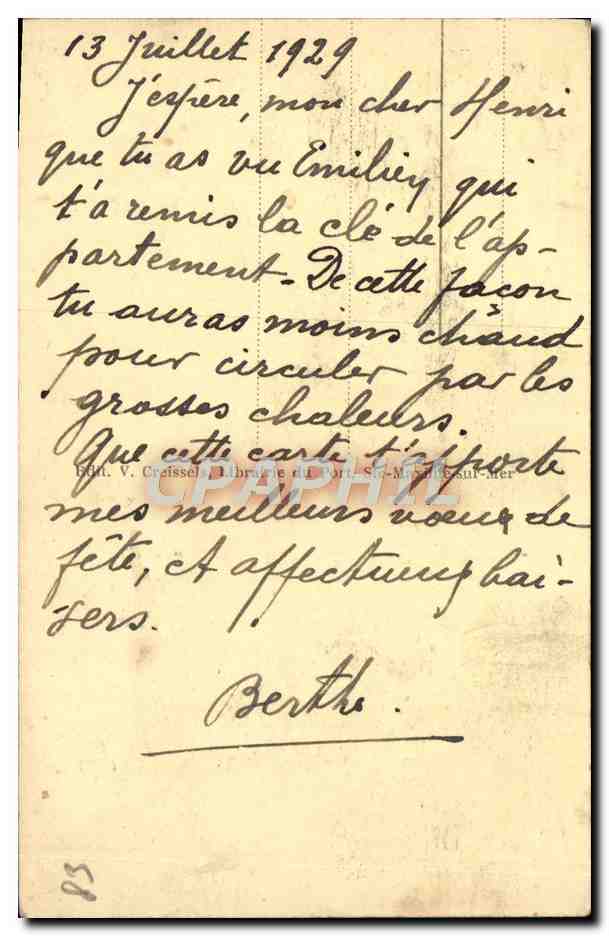 13 Juillet 1929
J'espère, mon cher Henri
que tu as vu Emilien qui
t'a remis la clé de l'ap-
partement - De cette façon
tu auras moins chaud
pour circuler par les
grosses chaleurs.
Que cette carte t'apporte
Edit. V. Creissels, Librairie du Port, Ste-Maxime-sur-Mer
CPAPHIL
mes meilleurs voeux de
fête, et affectueux bai-
sers.
Berthe.
83